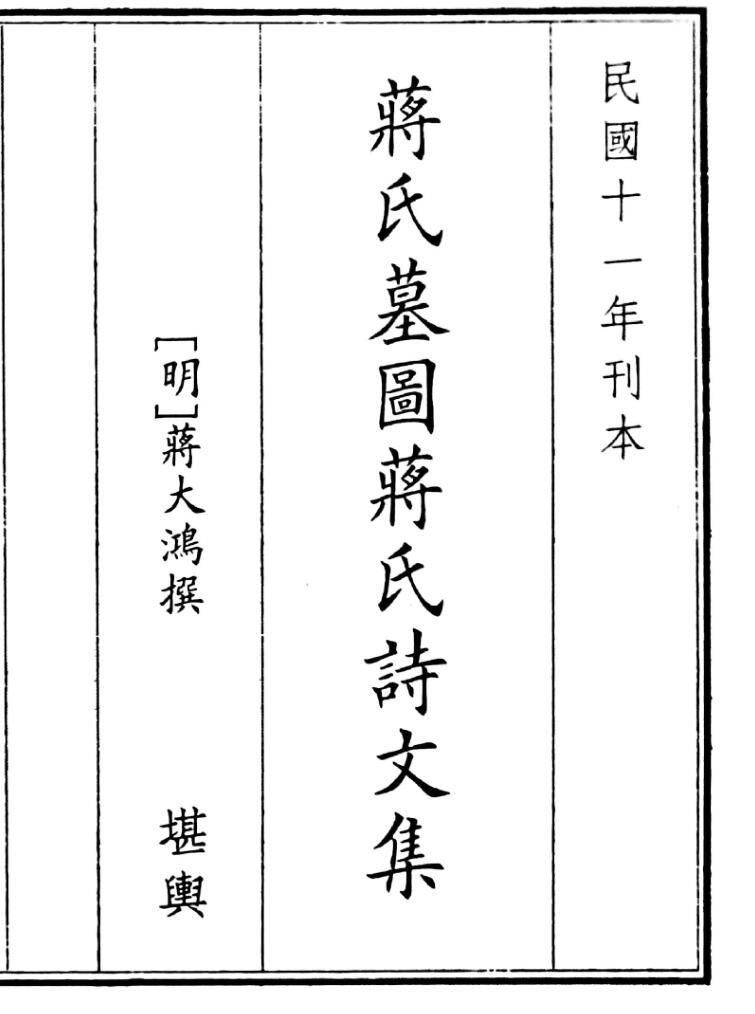 民國十一年刊本
蔣氏墓圖蔣氏詩文集
[明]蔣大鴻撰 堪輿